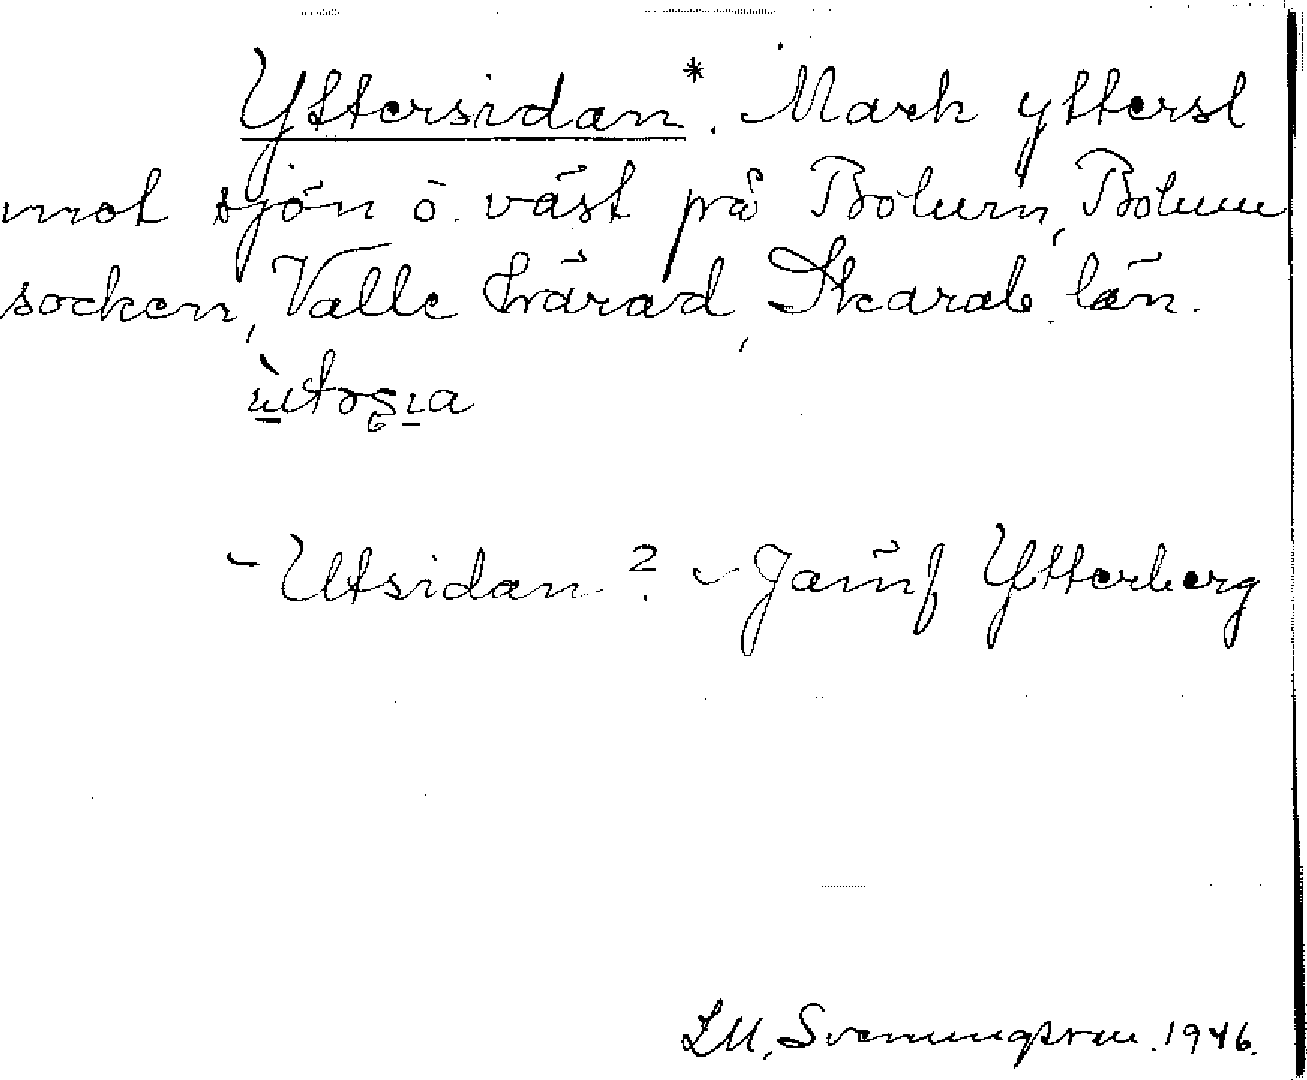 Yttersidan*. Mark ytterst
mot sjön ö. väst på Bolum, Bolum
socken, Valle härad, Skarab. län.
- Utsidan? - Jämf Ytterberg
LM. Svenungsson. 1946.